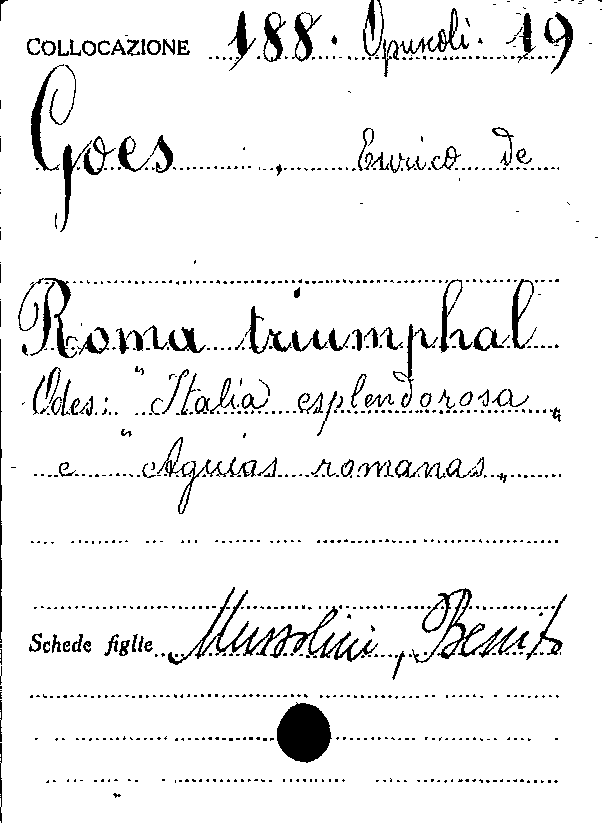 COLLOCAZIONE 188. Opuscoli. 19
Goes, Enrico de
Roma triumphal
Odes: "Italia esplendorosa„
e "Aguias romanas„
Schede figlie Mussolini, Benito